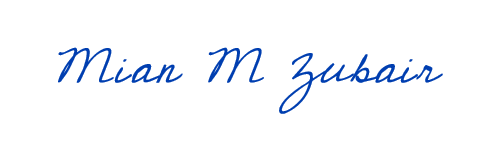 Mian M Zubair